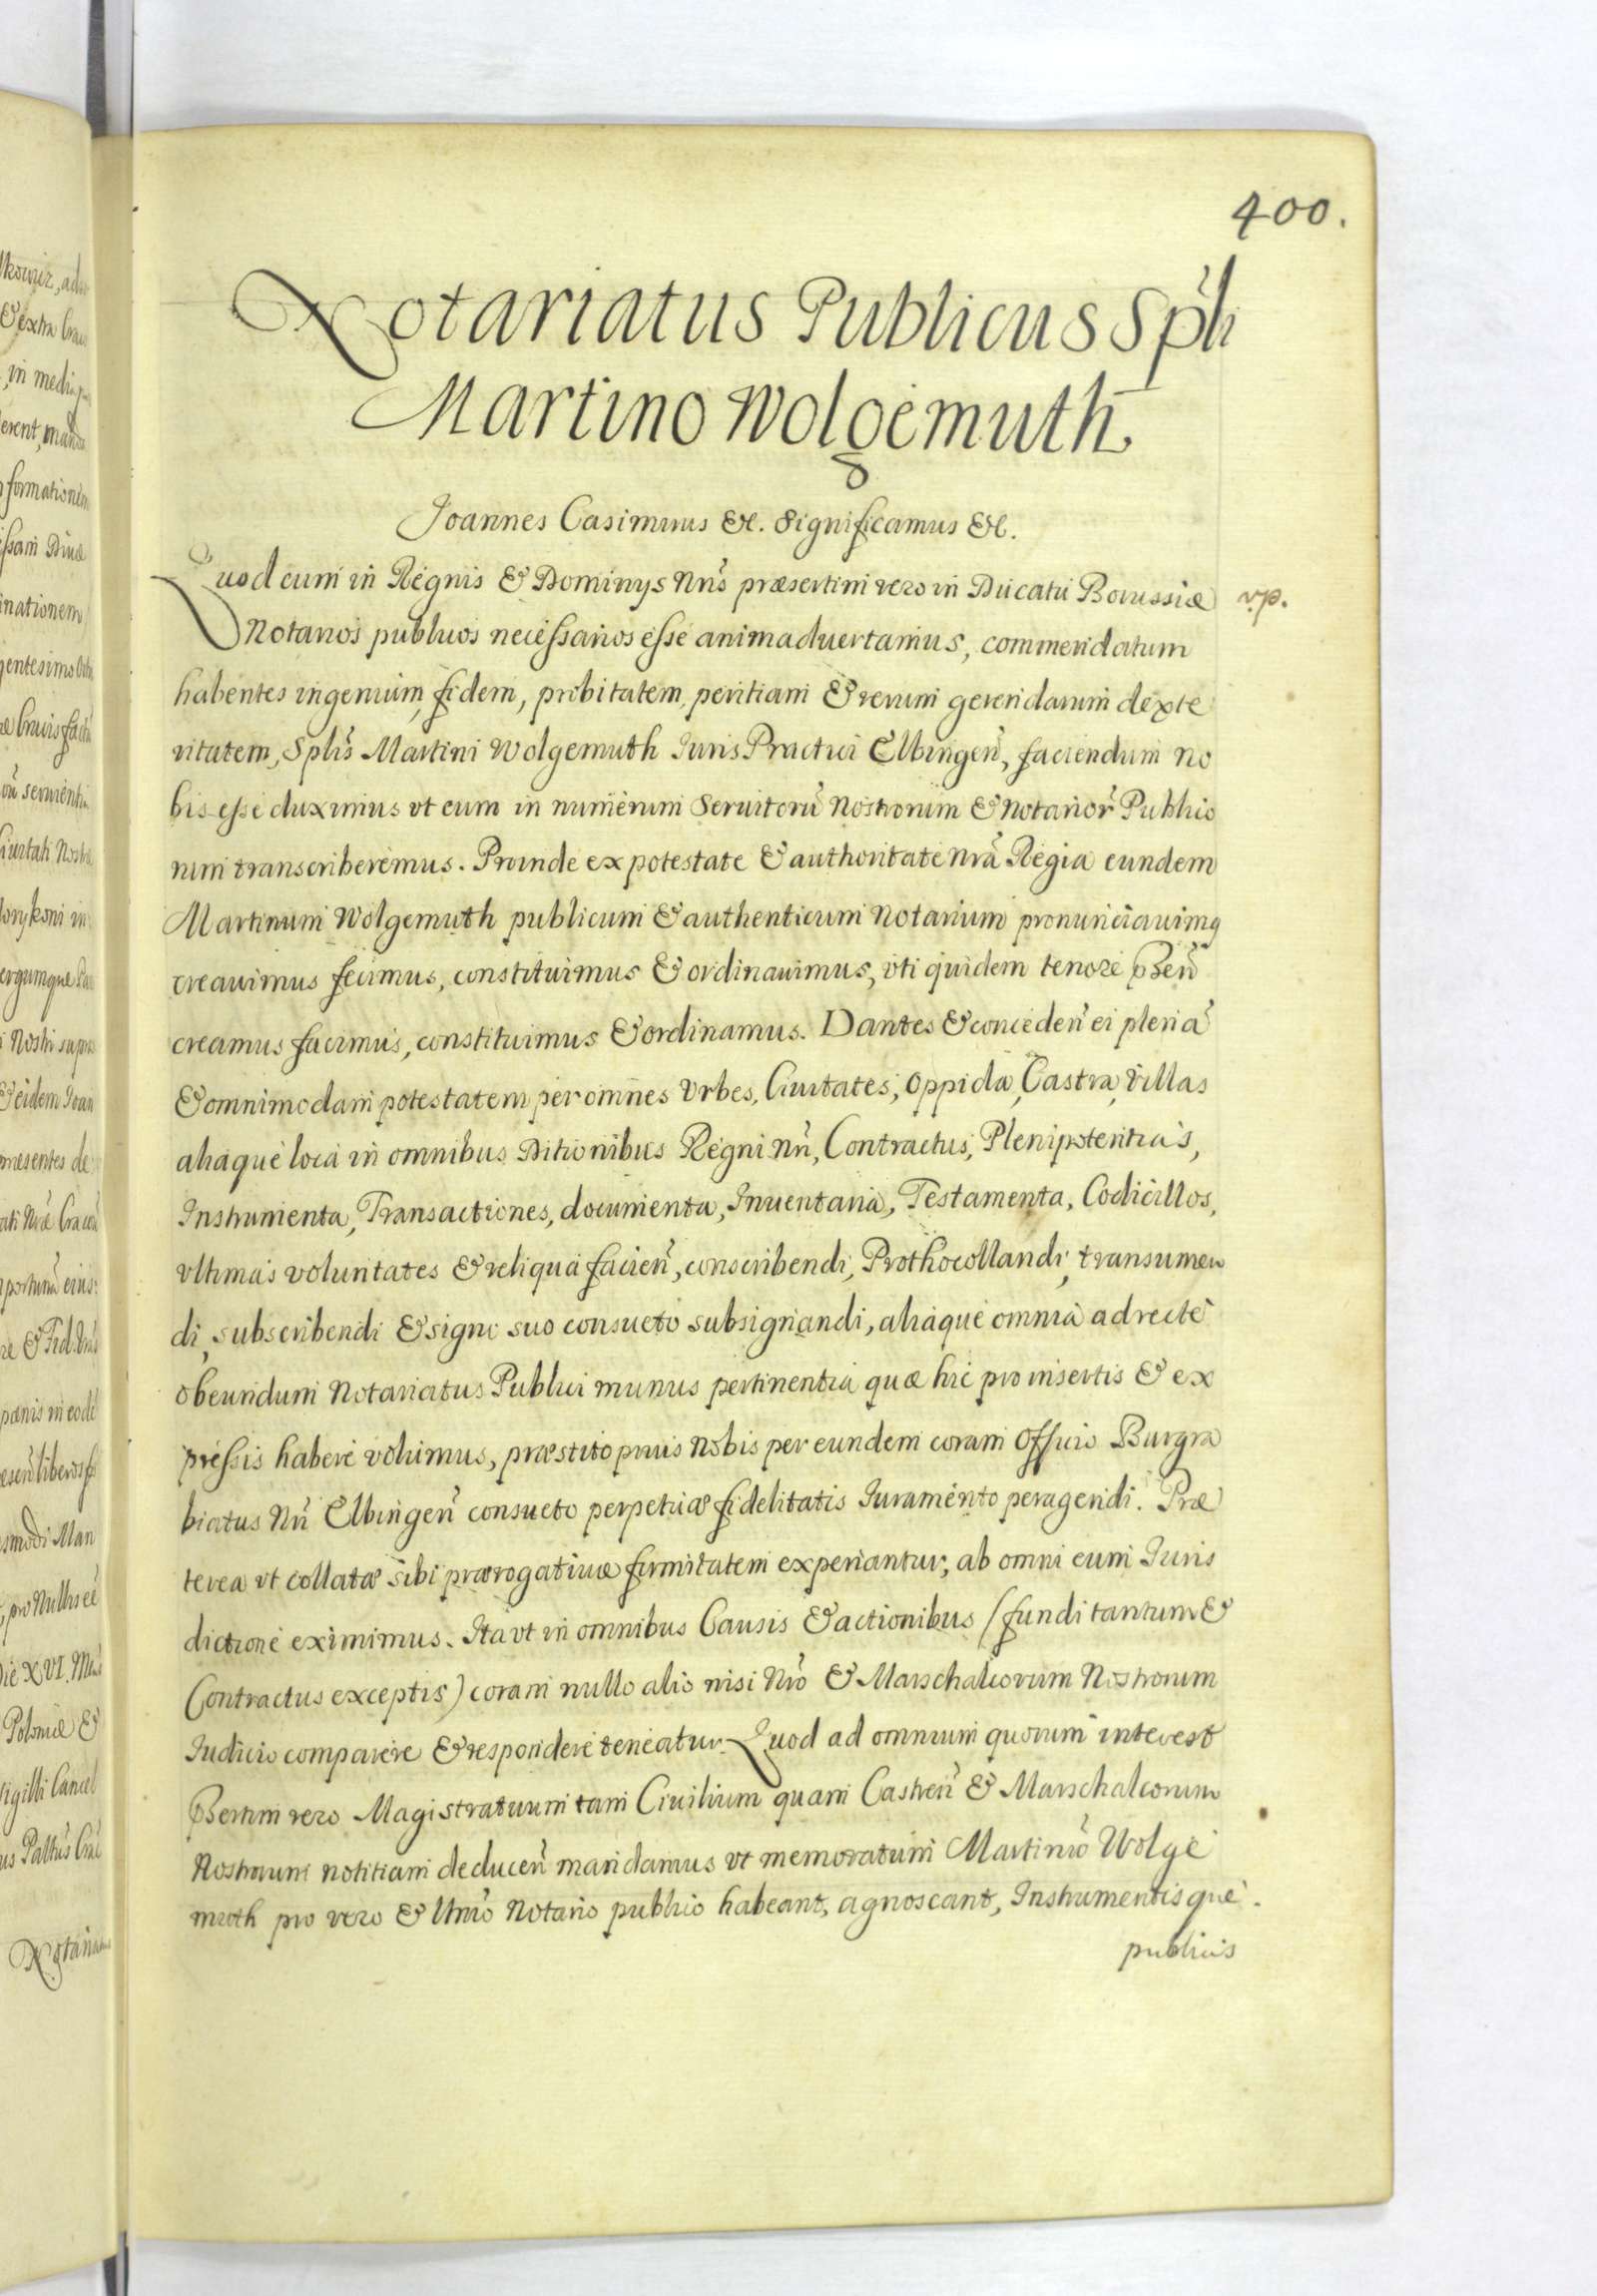 400.
Notariatus Publicus Spli
Martino Wolgemuth
Joannes Casimirus &c. Significamus &c.
Quod cum in Regnis & Dominys Nris præsertim vero in Ducatu Borussiæ
vp.
Notarios publicos necessarios esse animaduertamus, commendatum
habentes ingenium, fidem, probitatem, peritiam & rerum gerendarum dexte
ritatem, Splis Martini Wolgemuth Iuris Practici Elbingen, faciendum no
bis esse duximus vt eum in numerum Seruitorū Nostrorum & Notarior Publico
rum transcriberemus. Proinde ex potestate & authoritate nrā Regia eundem
Martinum Wolgemuth publicum & authenticum Notarium pronunciauimq
creauimus fecimus, constituimus & ordinauimus, vti quidem tenore pñsen
creamus facimus, constituimus & ordinamus. Dantes & conceden ei plenā
& omnimodam potestatem per omnes Vrbes, Ciuitates, Oppida, Castra, Villas
aliaque loca in omnibus Ditionibus Regni Nri, Contractus, Plenipotentias,
Instrumenta, Transactiones, documenta, Inuentaria, Testamenta, Codicillos,
vltimas voluntates & reliqua facien, conscribendi, Prothocollandi, transumen
di, subscribendi & signo suo consueto subsignandi, aliaque omnia ad recte
obeundum Notariatus Publici munus pertinentia quæ hic pro insertis & ex
pressis habere volumus, præstito prius Nobis per eundem coram Officio Burgra
biatus Nri Elbingen consueto perpetuæ fidelitatis Iuramento peragendi. Præ
terea vt collatæ sibi prærogatiuæ firmitatem experiantur, ab omni eum Iuris
dictione eximimus. Ita vt in omnibus Causis & actionibus (fundi tantum &
Contractus exceptis) coram nullo alio nisi Nro & Marschalcorum Nostrorum
Iudicio comparere & respondere teneatur. Quod ad omnium quorum interest
pñsertim vero Magistratuum tam Ciuilium quam Castren & Marschalcorum
Nostrorum notitiam deducen mandamus vt memoratum Martinū Wolge
muth pro vero & ltmo Notario publico habeant, agnoscant, Instrumentisque
publicis